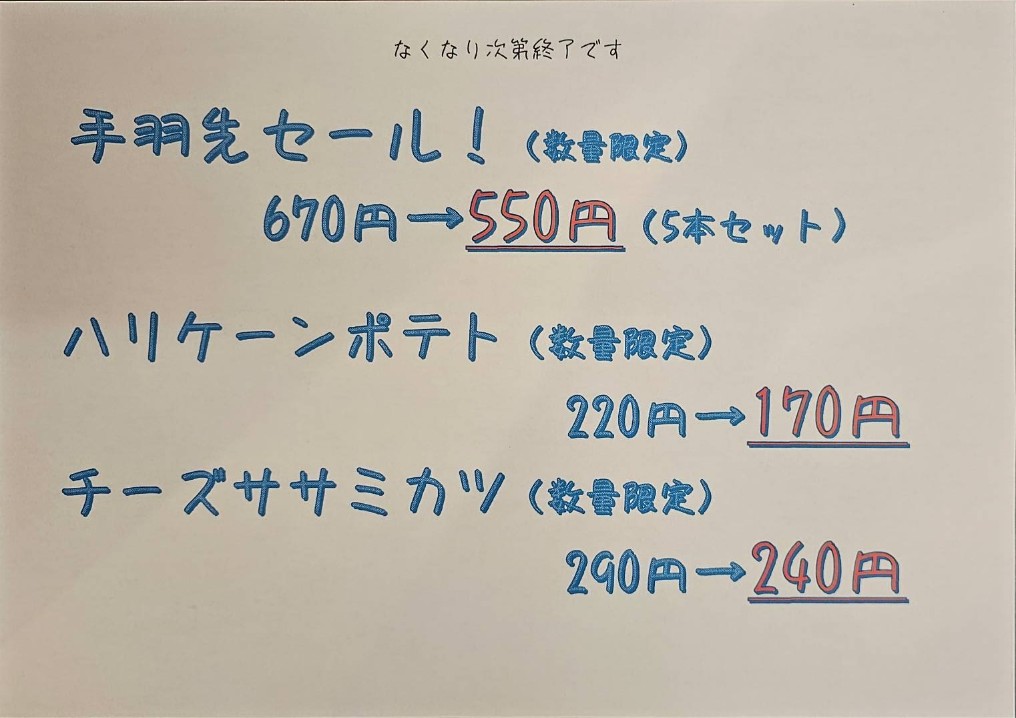 なくなり次第終了です
手羽先セール！（数量限定）
670円→550円（5本セット）
ハリケーンポテト（数量限定）
220円→170円
チーズササミカツ（数量限定）
290円→240円